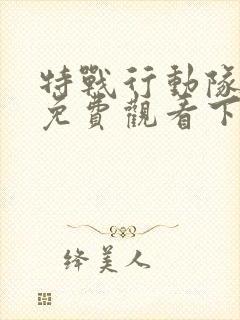 特戰行動隊
免費觀看下
绛美人